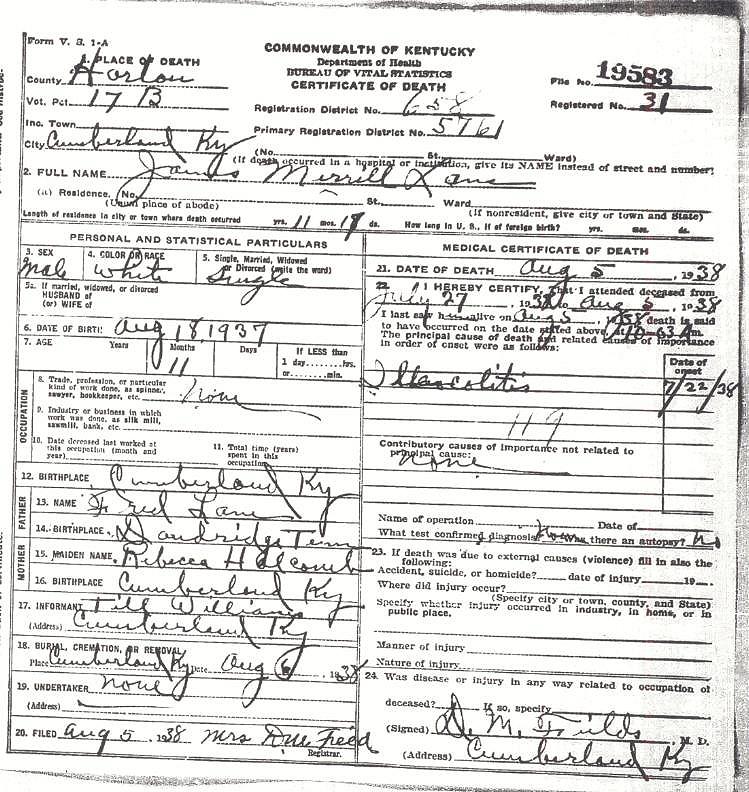 Form V. S. 1-A
COMMONWEALTH OF KENTUCKY
Department of Health
BUREAU OF VITAL STATISTICS
CERTIFICATE OF DEATH
File No. 19583
Registered No. 31
1. PLACE OF DEATH
County Harlan
Vot. Pct. 17 B
Inc. Town
City Cumberland Ky
Registration District No. 658
Primary Registration District No. 5761
(No. St. Ward)
(If death occurred in a hospital or institution, give its NAME instead of street and number)
2. FULL NAME James Merrill Lane
(a) Residence. No. St., Ward
(Usual place of abode) (If nonresident, give city or town and State)
Length of residence in city or town where death occurred yrs. 11 mos. 17 ds. How long in U. S., if of foreign birth? yrs. mos. ds.
PERSONAL AND STATISTICAL PARTICULARS
3. SEX Male
4. COLOR OR RACE White
5. Single, Married, Widowed or Divorced (write the word) Single
5a. If married, widowed, or divorced
HUSBAND of
(or) WIFE of
6. DATE OF BIRTH Aug 18, 1937
7. AGE Years Months 11 Days If LESS than
1 day hrs.
or min.
OCCUPATION
8. Trade, profession, or particular
kind of work done, as spinner,
sawyer, bookkeeper, etc. None
9. Industry or business in which
work was done, as silk mill,
sawmill, bank, etc.
10. Date deceased last worked at
this occupation (month and
year)
11. Total time (years)
spent in this
occupation
12. BIRTHPLACE Cumberland Ky
FATHER
13. NAME Fred Lane
14. BIRTHPLACE Dandridge Tenn
MOTHER
15. MAIDEN NAME Rebecca Halcomb
16. BIRTHPLACE Cumberland Ky
17. INFORMANT Till Williams
(Address) Cumberland Ky
18. BURIAL, CREMATION, OR REMOVAL
Place Cumberland Ky Date Aug 6, 1938
19. UNDERTAKER None
(Address)
20. FILED Aug 5 1938 Mrs
Registrar.
MEDICAL CERTIFICATE OF DEATH
21. DATE OF DEATH Aug 5, 1938
22. I HEREBY CERTIFY, That I attended deceased from
July 27, 1938 to Aug 5, 1938
I last saw h alive on Aug 5, 1938 death is said
to have occurred on the date stated above, at m.
The principal cause of death and related causes of importance
in order of onset were as follows:
Date of
onset
Illeocolitis 7/22/38
119
Contributory causes of importance not related to
principal cause:
None
Name of operation Date of
What test confirmed diagnosis? Was there an autopsy? No
23. If death was due to external causes (violence) fill in also the
following:
Accident, suicide, or homicide? date of injury 19
Where did injury occur?
(Specify city or town, county, and State)
Specify whether injury occurred in industry, in home, or in
public place.
Manner of injury
Nature of injury
24. Was disease or injury in any way related to occupation of
deceased? If so, specify
(Signed) M. Fields M. D.
(Address) Cumberland Ky